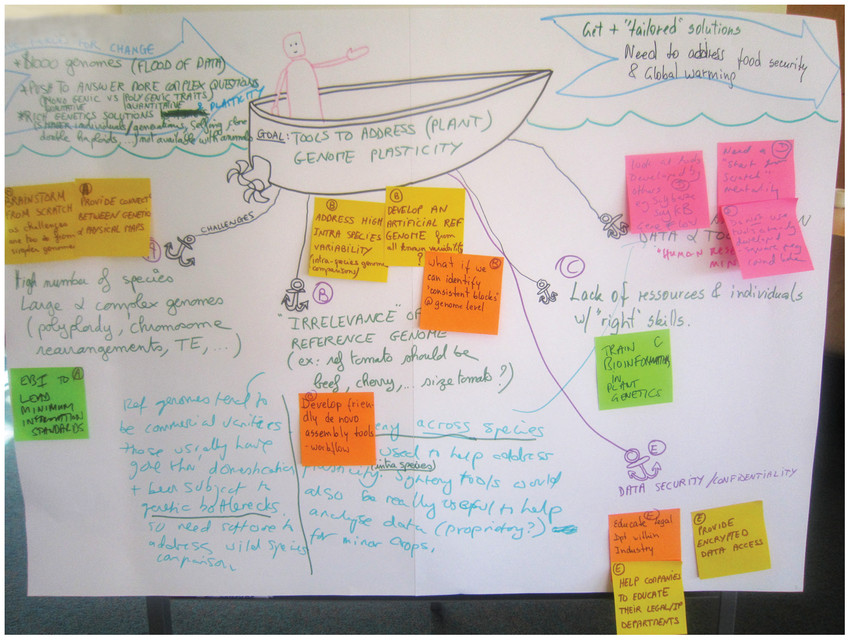 FOR CHANGE
+ $1000 GENOMES (FLOOD OF DATA)
+ PUSH TO ANSWER MORE COMPLEX QUESTIONS
(MONOGENIC VS POLYGENIC TRAITS)
QUANTITATIVE & PLASTICITY
RICH GENETICS SOLUTIONS
individuals/generations, selfing, clone
double haploids, ...) not available with animals
Get + "tailored" solutions
Need to address food security
& Global warming
GOAL: TOOLS TO ADDRESS (PLANT)
GENOME PLASTICITY
CHALLENGES
BRAINSTORM
FROM SCRATCH
as challenges
simpler genomes
A
PROVIDE
BETWEEN GENETIC
& PHYSICAL MAPS
High number of species
Large & complex genomes
(polyploidy, chromosome
rearrangements, TE, ...)
EBI TO
LEAD
MINIMUM
INFORMATION
STANDARDS
B
ADDRESS HIGH
INTRA SPECIES
VARIABILITY
(intra-species genome
comparisons)
B
DEVELOP AN
ARTIFICIAL REF
GENOME from
all known variability
?
B
What if we
can identify
"consistent blocks"
@ genome level
B
"IRRELEVANCE" OF
REFERENCE GENOME
(ex: ref tomato should be
beef, cherry, ... size tomato?)
Develop frien-
dly de novo
assembly tools
- workflow
Ref genomes tend to
be commercial varieties
those usually have
gone thru' domestication
+ been subject to
genetic bottlenecks.
so need software to
address wild species
comparison.
across species
used to help address
(intra species)
plasticity. Synteny tools would
also be really useful to help
analyse data (proprietary?)
for minor crops.
developed by
others
Need a
"start from
scratch"
mentality
DATA &
"HUMAN
C
Lack of ressources & individuals
w/ "right" skills.
TRAIN C
BIOINFORMATICS
IN
PLANT
GENETICS
E
DATA SECURITY / CONFIDENTIALITY
E
Educate legal
Dpt within
Industry
E
PROVIDE
ENCRYPTED
DATA ACCESS
E
HELP COMPANIES
TO EDUCATE
THEIR LEGAL/IP
DEPARTMENTS